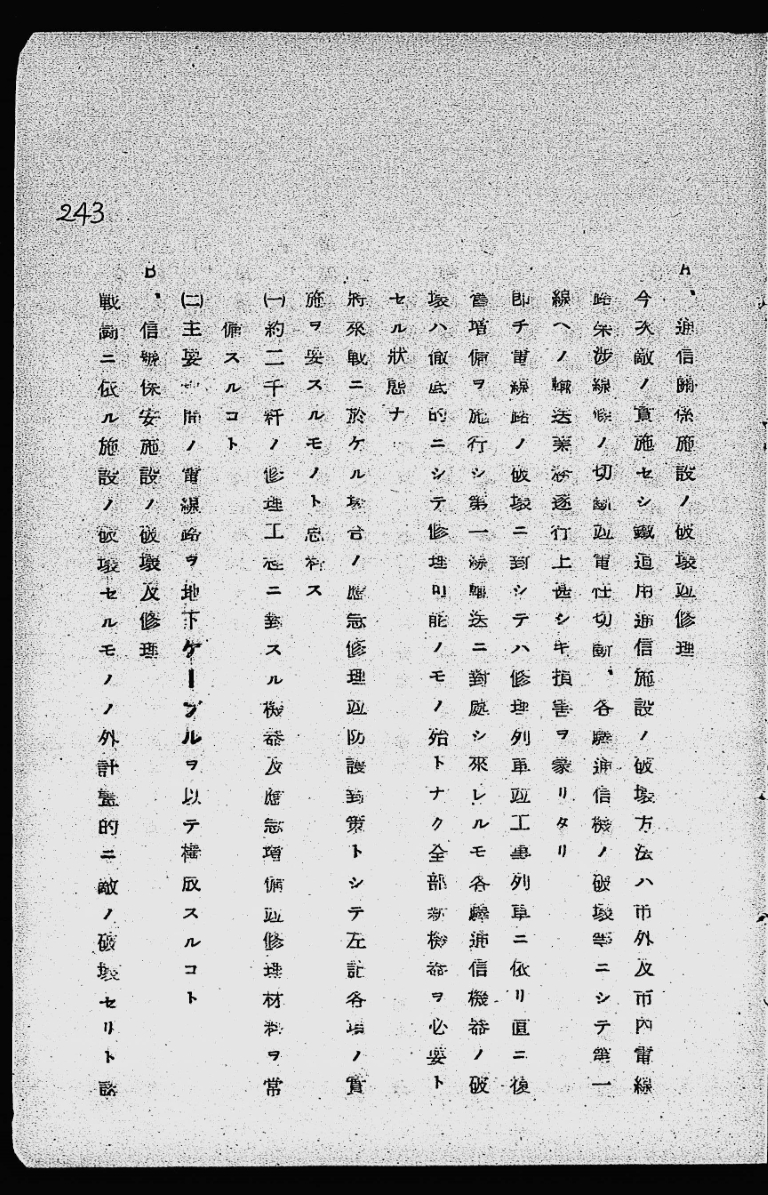 243
A、通信關係施設ノ破壞竝修理
今次敵ノ實施セシ鐵道用通信施設ノ破壞方法ハ市外及市內電線
路朱涉線條ノ切斷竝電柱切斷、各驛通信機ノ破壞等ニシテ第一
線ヘノ輸送業務遂行上甚シキ損害ヲ蒙リタリ
卽チ電線路ノ破壞ニ對シテハ修理列車竝工事列車ニ依リ直ニ復
舊增備ヲ施行シ第一線輸送ニ對處シ來レルモ各驛通信機器ノ破
壞ハ徹底的ニシテ修理可能ノモノ殆トナク全部新機器ヲ必要ト
セル狀態ナ
將來戰ニ於ケル場合ノ應急修理竝防護對策トシテ左記各項ノ實
施ヲ要スルモノト思料ス
㈠約二千粁ノ修理工程ニ對スル機器及應急增備竝修理材料ヲ常
備スルコト
㈡主要 間ノ電線路ヲ地下ケーブルヲ以テ構成スルコト
B、信號保安施設ノ破壞及修理
戰鬪ニ依ル施設ノ破壞セルモノノ外計畫的ニ敵ノ破壞セリト認